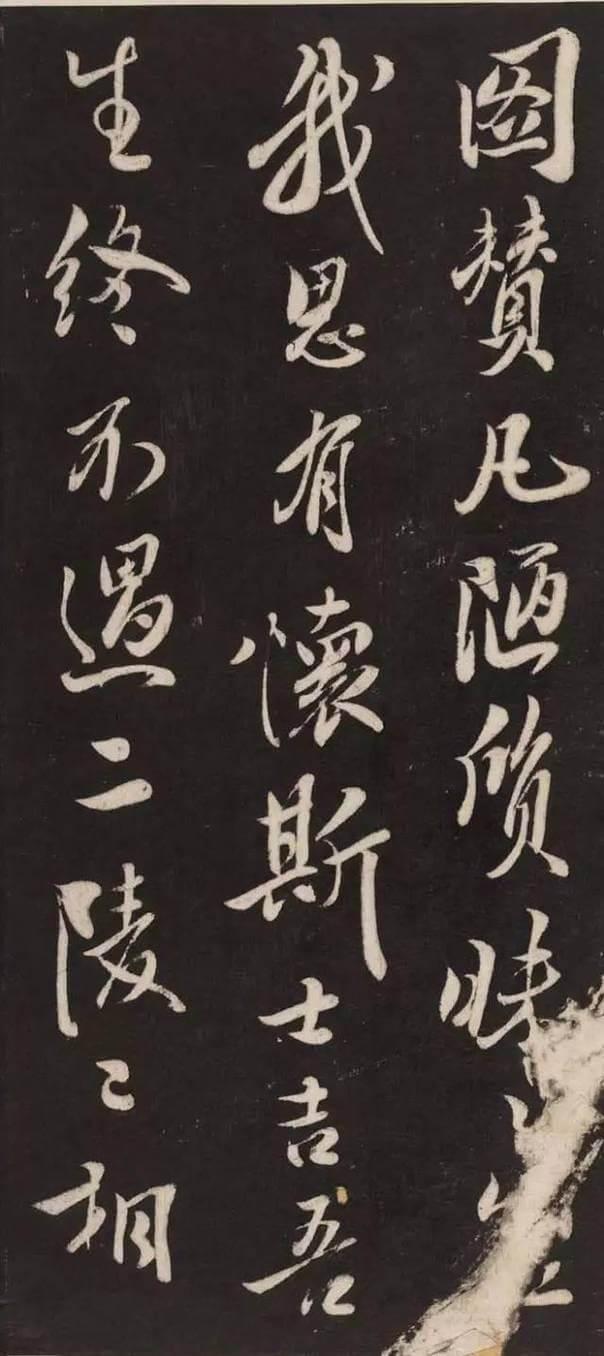 圖賛凡陋質昧
我思有懷斯士吉吾
生終不遇二陵〻相